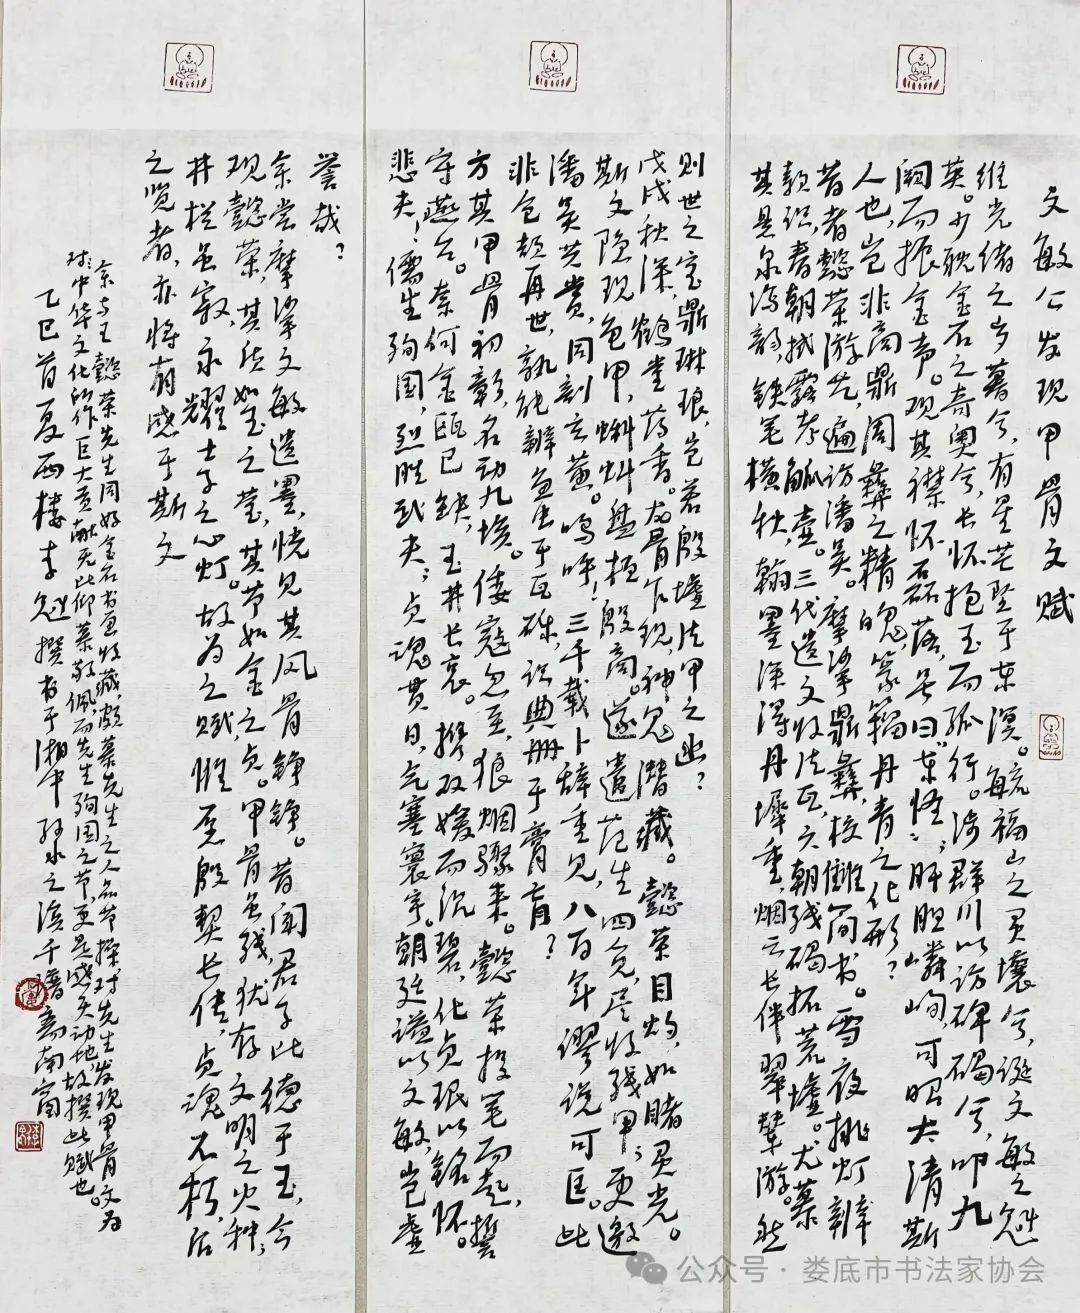 文敏公发现甲骨文赋
维光绪之岁暮兮，有星芒坠于东溟。毓福山之灵壤兮，诞文敏之魁
英。少耽金石之奇奥兮，长怀抱玉而孤行。涉群川以访碑碣兮，叩九
阙而振金声。观其襟怀磊落，号曰“东怪”；肝胆嶙峋，可昭大清斯
人也，岂非商鼎周彝之精魄，篆籀丹青之化形？
昔者懿荣游艺，遍访潘吴。摩挲鼎彝，校雠简书。雪夜挑灯辨
款识，春朝拭露考觚壶。三代遗文收法瓦，六朝残碣拓荒墟。尤慕
其晁泉泻韵，铁笔横秋，翰墨深得丹墀重，烟云长伴翠辇游。然
则世之宝鼎琳琅，岂若殷墟法甲之幽？
戊戌秋深，鹤堂药香。龙骨乍现，神鬼潜藏。懿荣目灼，如睹灵光。
斯文隐现龟甲，蝌蚪盘桓殷商。遂遣范生四觅，尽收残甲；更邀
潘吴共赏，同刻玄黄。呜呼！三千载卜辞重见，八百年谬说可匡。此
非仓颉再世，孰能辨鱼虫于瓦砾，识典册于膏肓？
方其甲骨初彰，名动九垓。倭寇忽至，狼烟骤来。懿荣投笔而起，誓
守燕台。奈何金瓯已缺，玉井长哀。携双媛而沉碧，化贞珉以铭怀。
悲夫！儒生殉国，烈胜武夫；贞魂贯日，气塞寰宇。朝廷谥以文敏，岂虚
誉哉？
余尝摩挲文敏遗墨，恍见其风骨铮铮。昔闻君子比德于玉，今
观懿荣，其质如玉之莹，其节如金之贞。甲骨虽残，犹存文明之火种；
井栏虽寂，永耀士子之心灯。故为之赋，惟愿殷契长传，贞魂不朽，后
之览者，亦将有感于斯文
余与王懿荣先生同好金石书画收藏，颇慕先生之人品节操，对先生发现甲骨文为
对中华文化所作巨大贡献无比仰慕敬佩，而先生殉国之节，更是感天动地，故撰此赋也。
乙巳首夏西楼李 撰书于湘中孙水之滨千 斋南窗
公众号·娄底市书法家协会